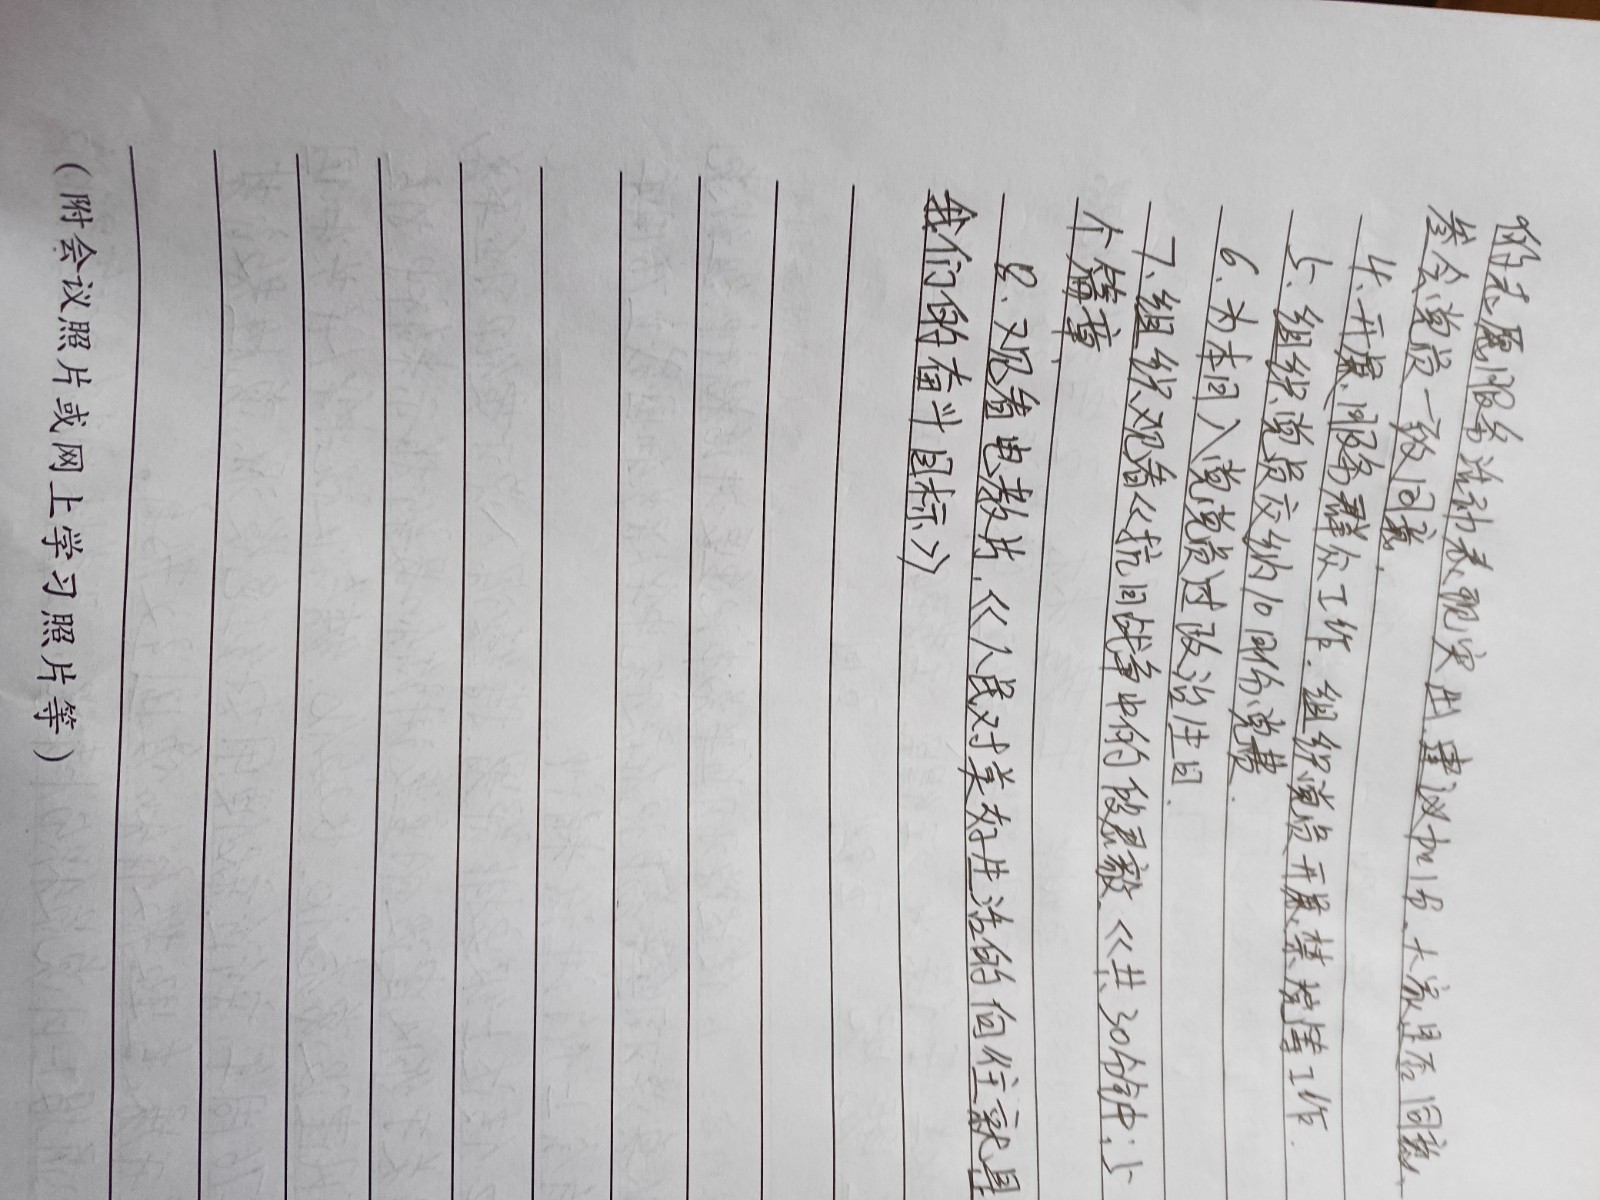 的志愿服务活动表现突出,建议加1分,大家是否同意、
参会党员一致同意.
4、开展服务群众工作.组织党员开展禁烧等工作.
5、组织党员交纳10月份党费.
6、为本月入党党员过政治生日.
7、组织观看《抗日战争中的
《共30分钟;5
个篇章、
8、观看电教片,《人民对美好生活的向往就是
我们的奋斗目标》
(附会议照片或网上学习照片等)